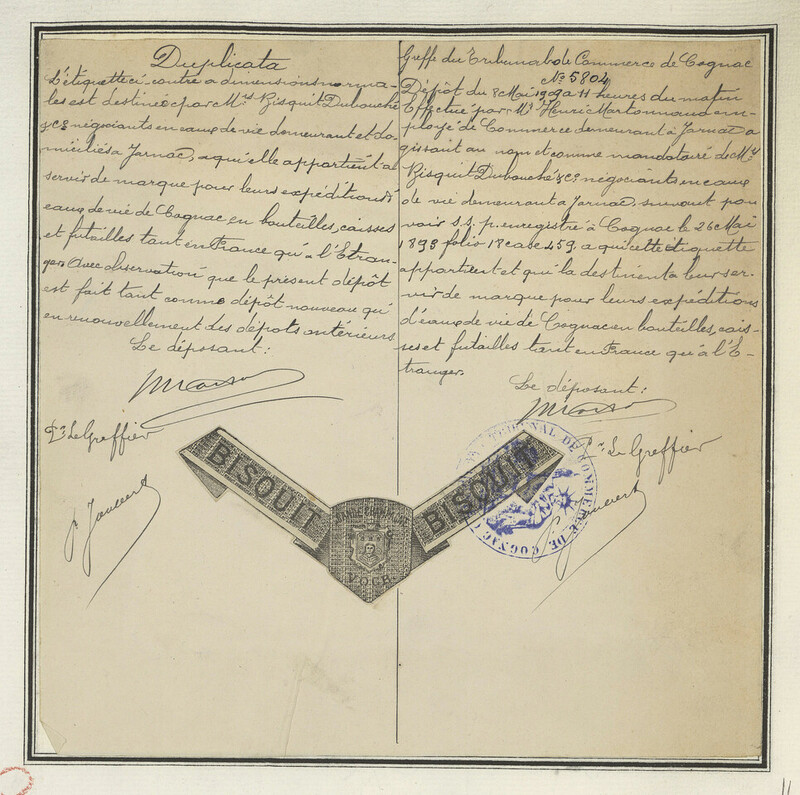 Duplicata
L'étiquette ci-contre a dimensions norma-
les est destinée par Mrs Bisquit Dubouché
& Co négociants en eaux de vie demeurant et do-
miciliés à Jarnac, a qui elle appartient a
servir de marque pour leurs expéditions d'
eaux de vie de Cognac en bouteilles, caisses
et futailles tant en France qu'a l'Etran-
ger. Avec observation que le présent dépôt
est fait tant comme dépôt nouveau qu'
en renouvellement des dépôts antérieurs
Le déposant:
Pr Le Greffier
Greffe du Tribunal de Commerce de Cognac
No 5804
Dépôt du 8 Mai 1909 a 11 heures du matin
Effectué par Mr Henri Martonnaud em-
ployé de Commerce demeurant à Jarnac a
gissant au nom et comme mandataire de Mrs
Bisquit Dubouché & Co négociants en eaux
de vie demeurant a Jarnac, suivant pou
voir s.s.p. enregistré à Cognac le 26 Mai
1898 folio 18 case 459, a qui cette étiquette
appartient et qui la destinent a leur ser-
vir de marque pour leurs expéditions
d'eaux de vie de Cognac en bouteilles, cais-
ses et futailles tant en France qu'à l'E-
tranger.
Le déposant:
Pr Le Greffier
BISQUIT
BISQUIT
V.O.C.B.
TRIBUNAL DE COMMERCE DE COGNAC